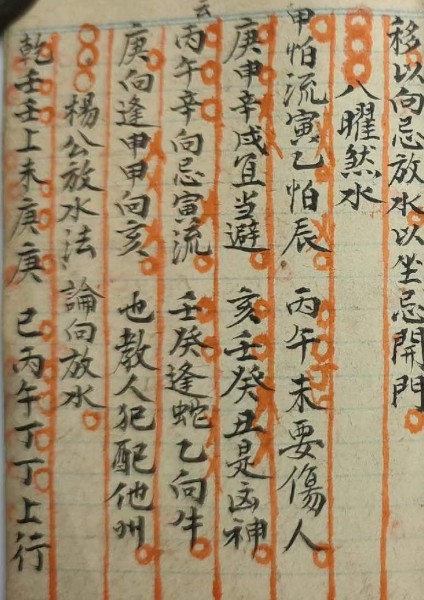 移以向忌放水以坐忌開門
八曜煞水
甲怕流寅乙怕辰 丙午未要傷人
庚申辛戌宜当避 亥壬癸丑是凶神
丙午辛向忌寅流 壬癸逢蛇乙向牛
庚向逢申甲向亥 也教人犯配他州
楊公放水法 論向放水
乾壬壬上未庚庚 巳丙午丁丁上行